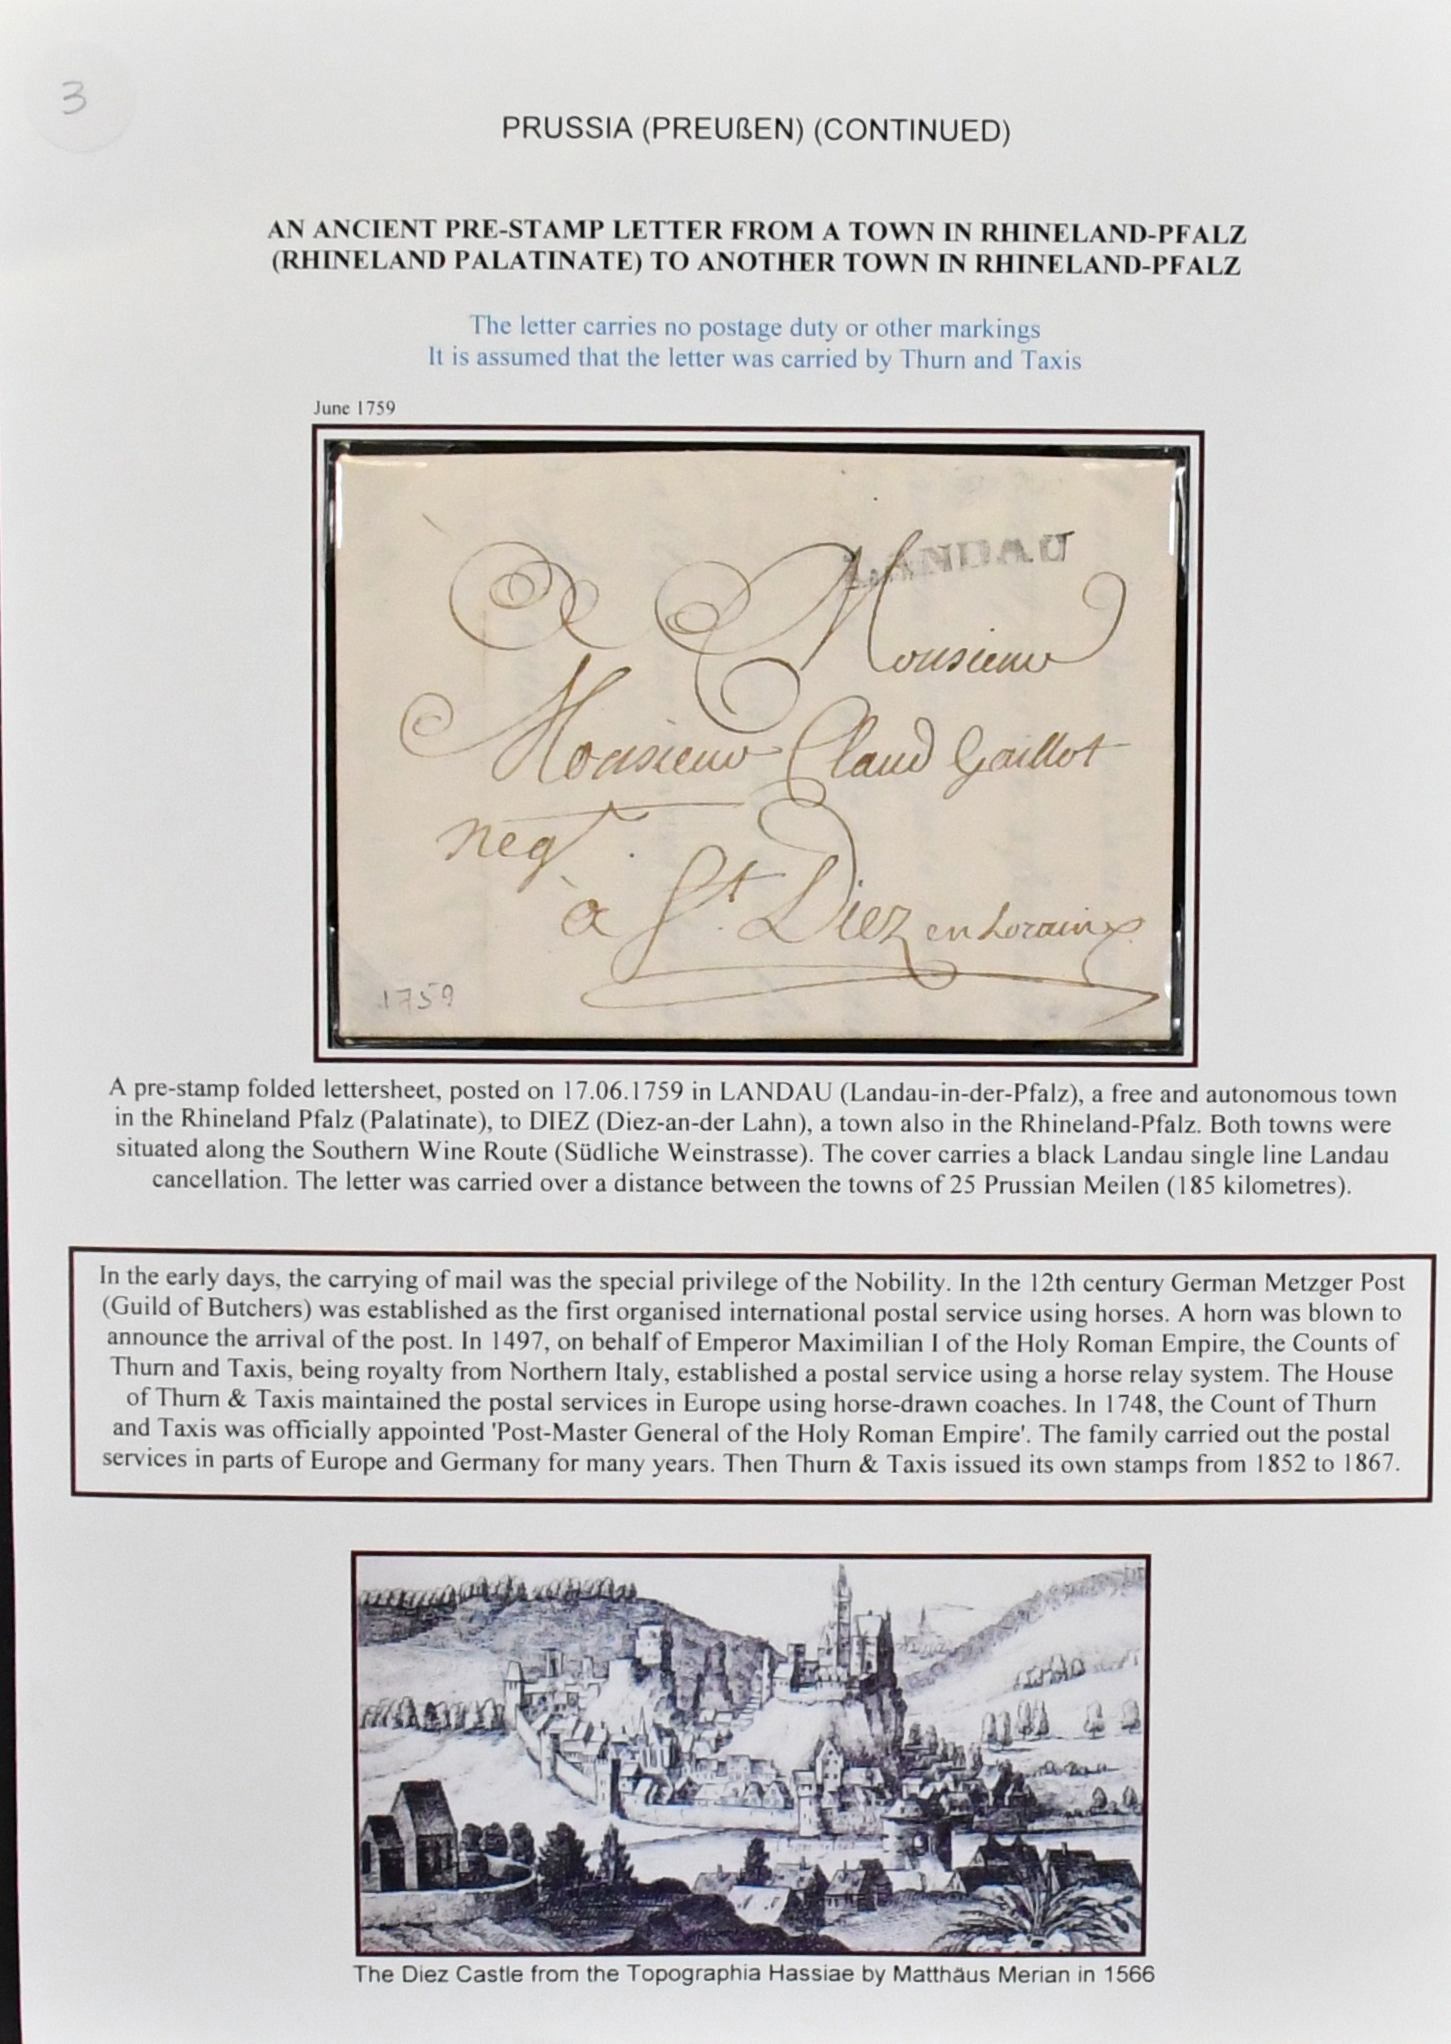 3
PRUSSIA (PREUßEN) (CONTINUED)
AN ANCIENT PRE-STAMP LETTER FROM A TOWN IN RHINELAND-PFALZ
(RHINELAND PALATINATE) TO ANOTHER TOWN IN RHINELAND-PFALZ
The letter carries no postage duty or other markings
It is assumed that the letter was carried by Thurn and Taxis
June 1759
LANDAU
Monsieur
Monsieur Claud Gaillot
negt
à St. Diez en Loraine
1759
A pre-stamp folded lettersheet, posted on 17.06.1759 in LANDAU (Landau-in-der-Pfalz), a free and autonomous town
in the Rhineland Pfalz (Palatinate), to DIEZ (Diez-an-der Lahn), a town also in the Rhineland-Pfalz. Both towns were
situated along the Southern Wine Route (Südliche Weinstrasse). The cover carries a black Landau single line Landau
cancellation. The letter was carried over a distance between the towns of 25 Prussian Meilen (185 kilometres).
In the early days, the carrying of mail was the special privilege of the Nobility. In the 12th century German Metzger Post
(Guild of Butchers) was established as the first organised international postal service using horses. A horn was blown to
announce the arrival of the post. In 1497, on behalf of Emperor Maximilian I of the Holy Roman Empire, the Counts of
Thurn and Taxis, being royalty from Northern Italy, established a postal service using a horse relay system. The House
of Thurn & Taxis maintained the postal services in Europe using horse-drawn coaches. In 1748, the Count of Thurn
and Taxis was officially appointed 'Post-Master General of the Holy Roman Empire'. The family carried out the postal
services in parts of Europe and Germany for many years. Then Thurn & Taxis issued its own stamps from 1852 to 1867.
The Diez Castle from the Topographia Hassiae by Matthäus Merian in 1566